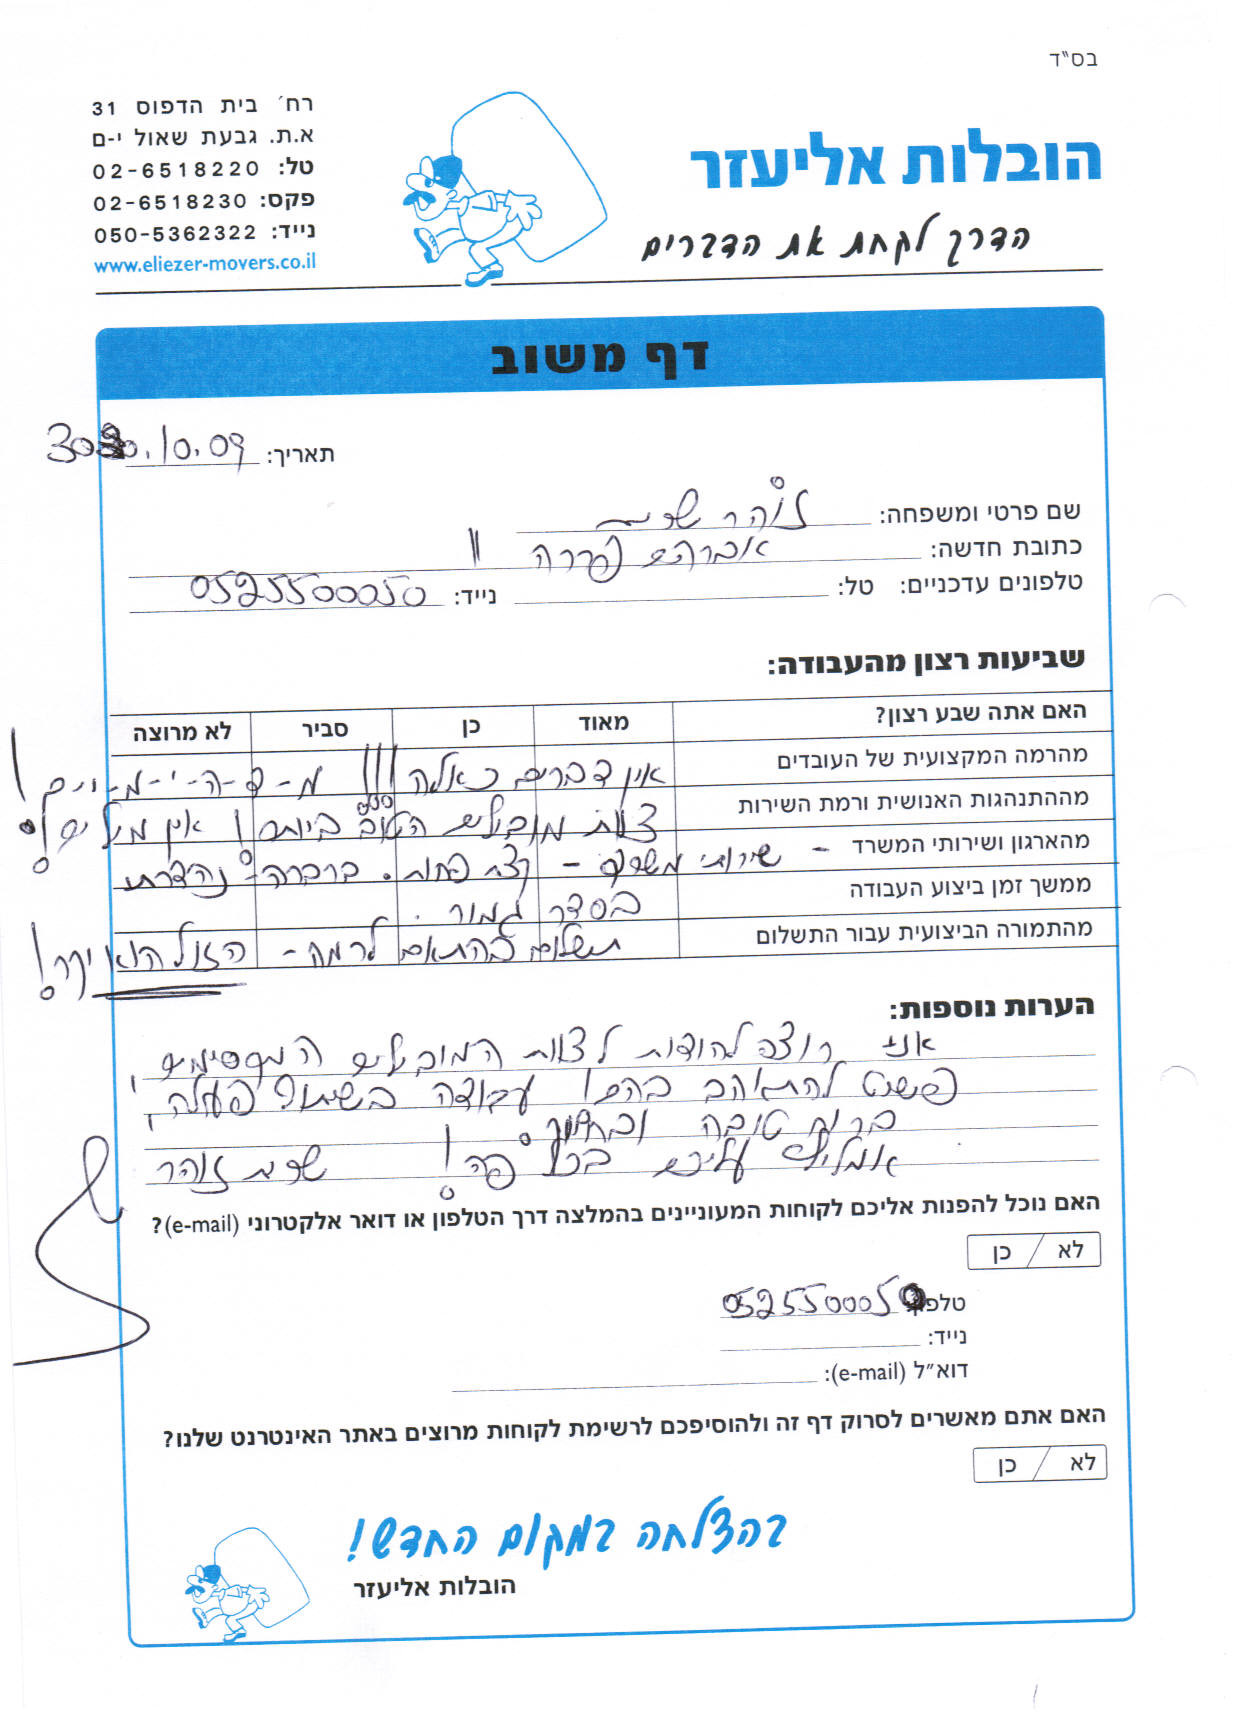 בס"ד
הובלות אליעזר
הדרך לקחת את הדברים
רח׳ בית הדפוס 31
א.ת. גבעת שאול י-ם
טל: 02-6518220
פקס: 02-6518230
נייד: 050-5362322
www.eliezer-movers.co.il
דף משוב
תאריך: .10.09
שם פרטי ומשפחה: זוהר
כתובת חדשה: אברהם פררה 11
טלפונים עדכניים: טל: נייד: 0525500050
שביעות רצון מהעבודה:
האם אתה שבע רצון? מאוד כן סביר לא מרוצה
מהרמה המקצועית של העובדים אין דברים כאלה !!! מ-ד-ה-י-מ-י-ם !
מההתנהגות האנושית ורמת השירות צוות מובילים הטוב ביותר ! אין מילים !
מהארגון ושירותי המשרד - שירותי משרד - קצת פחות. ברברה - נהדרת
ממשך זמן ביצוע העבודה בסדר גמור.
מהתמורה הביצועית עבור התשלום תשלום בהתאם לרמה - הזול הוא יקר!
הערות נוספות:
אני רוצה להודות לצוות המובילים המקסימים,
פשוט להתאהב בהם! עבודה בשיתוף פעולה,
ברוח טובה
אמליץ עליכם בכל פה! זוהר
האם נוכל להפנות אליכם לקוחות המעוניינים בהמלצה דרך הטלפון או דואר אלקטרוני (e-mail)?
לא / כן
טלפון: 0525500050
נייד:
דוא"ל (e-mail):
האם אתם מאשרים לסרוק דף זה ולהוסיפכם לרשימת לקוחות מרוצים באתר האינטרנט שלנו?
לא / כן
בהצלחה במקום החדש!
הובלות אליעזר